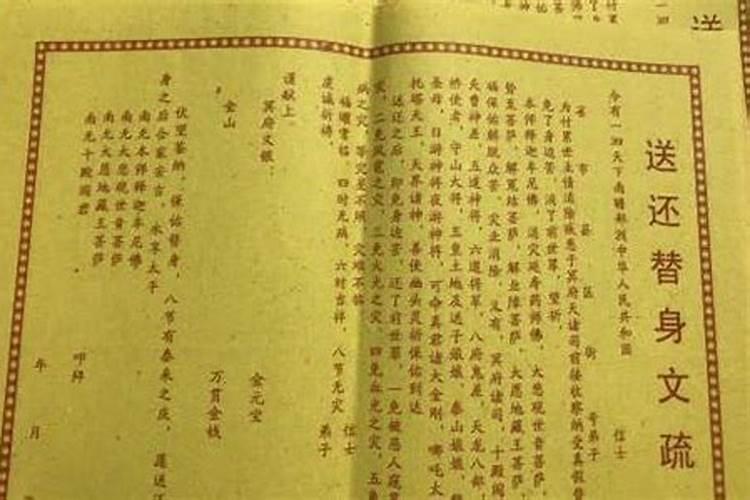 送还替身文疏
今有一四天下南赡部洲中华人民共和国
信士
省 市 县 区 街 号弟子
为付累世主债消除疾患于冥府天诸司前接收察纳受真假替
免了身边苦,消了前世罪,望祈
本师释迦牟尼佛,消灾延寿药师佛,大悲观世音菩萨
势至菩萨,解冤结菩萨,解业障菩萨,大愿地藏王菩萨,
福保佑解脱众苦,灾业消除,又有,冥府诸司,十殿阎
天曹神差,五道神将,六道将军,八府鬼差,天龙八部,
桥使者,守山大将,五皇土地及送子娘娘,泰山娘娘,
圣母,日游神将夜游神将,可命真君诸大金刚,哪吒太
托塔天王,天界诸神,善使幽头灵祈保佑到达
送还之后,即免身边苦,还了前世罪,一免被恶人
灾,二免风雹之灾,三免火光之灾,四免血光之灾,五免
病之灾,等灾星不照,灾难不临
福曜常临,四时无病,六时吉祥,八节无灾
虔诚祈祷, 信士
弟子
谨献上
冥府文银: 金元宝
金山 万贯金钱
伏望鉴纳,保佑替身,八节有泰来之庆,
身之后合家安吉,永享太平
南无本师释迦牟尼佛
南无大悲观世音菩萨
南无大愿地藏王菩萨
南无十殿阎君
叩拜
年 月
送